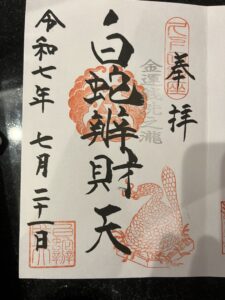 奉拝
白蛇辨財天
金運銭洗之瀧
令和七年 七月二十一日